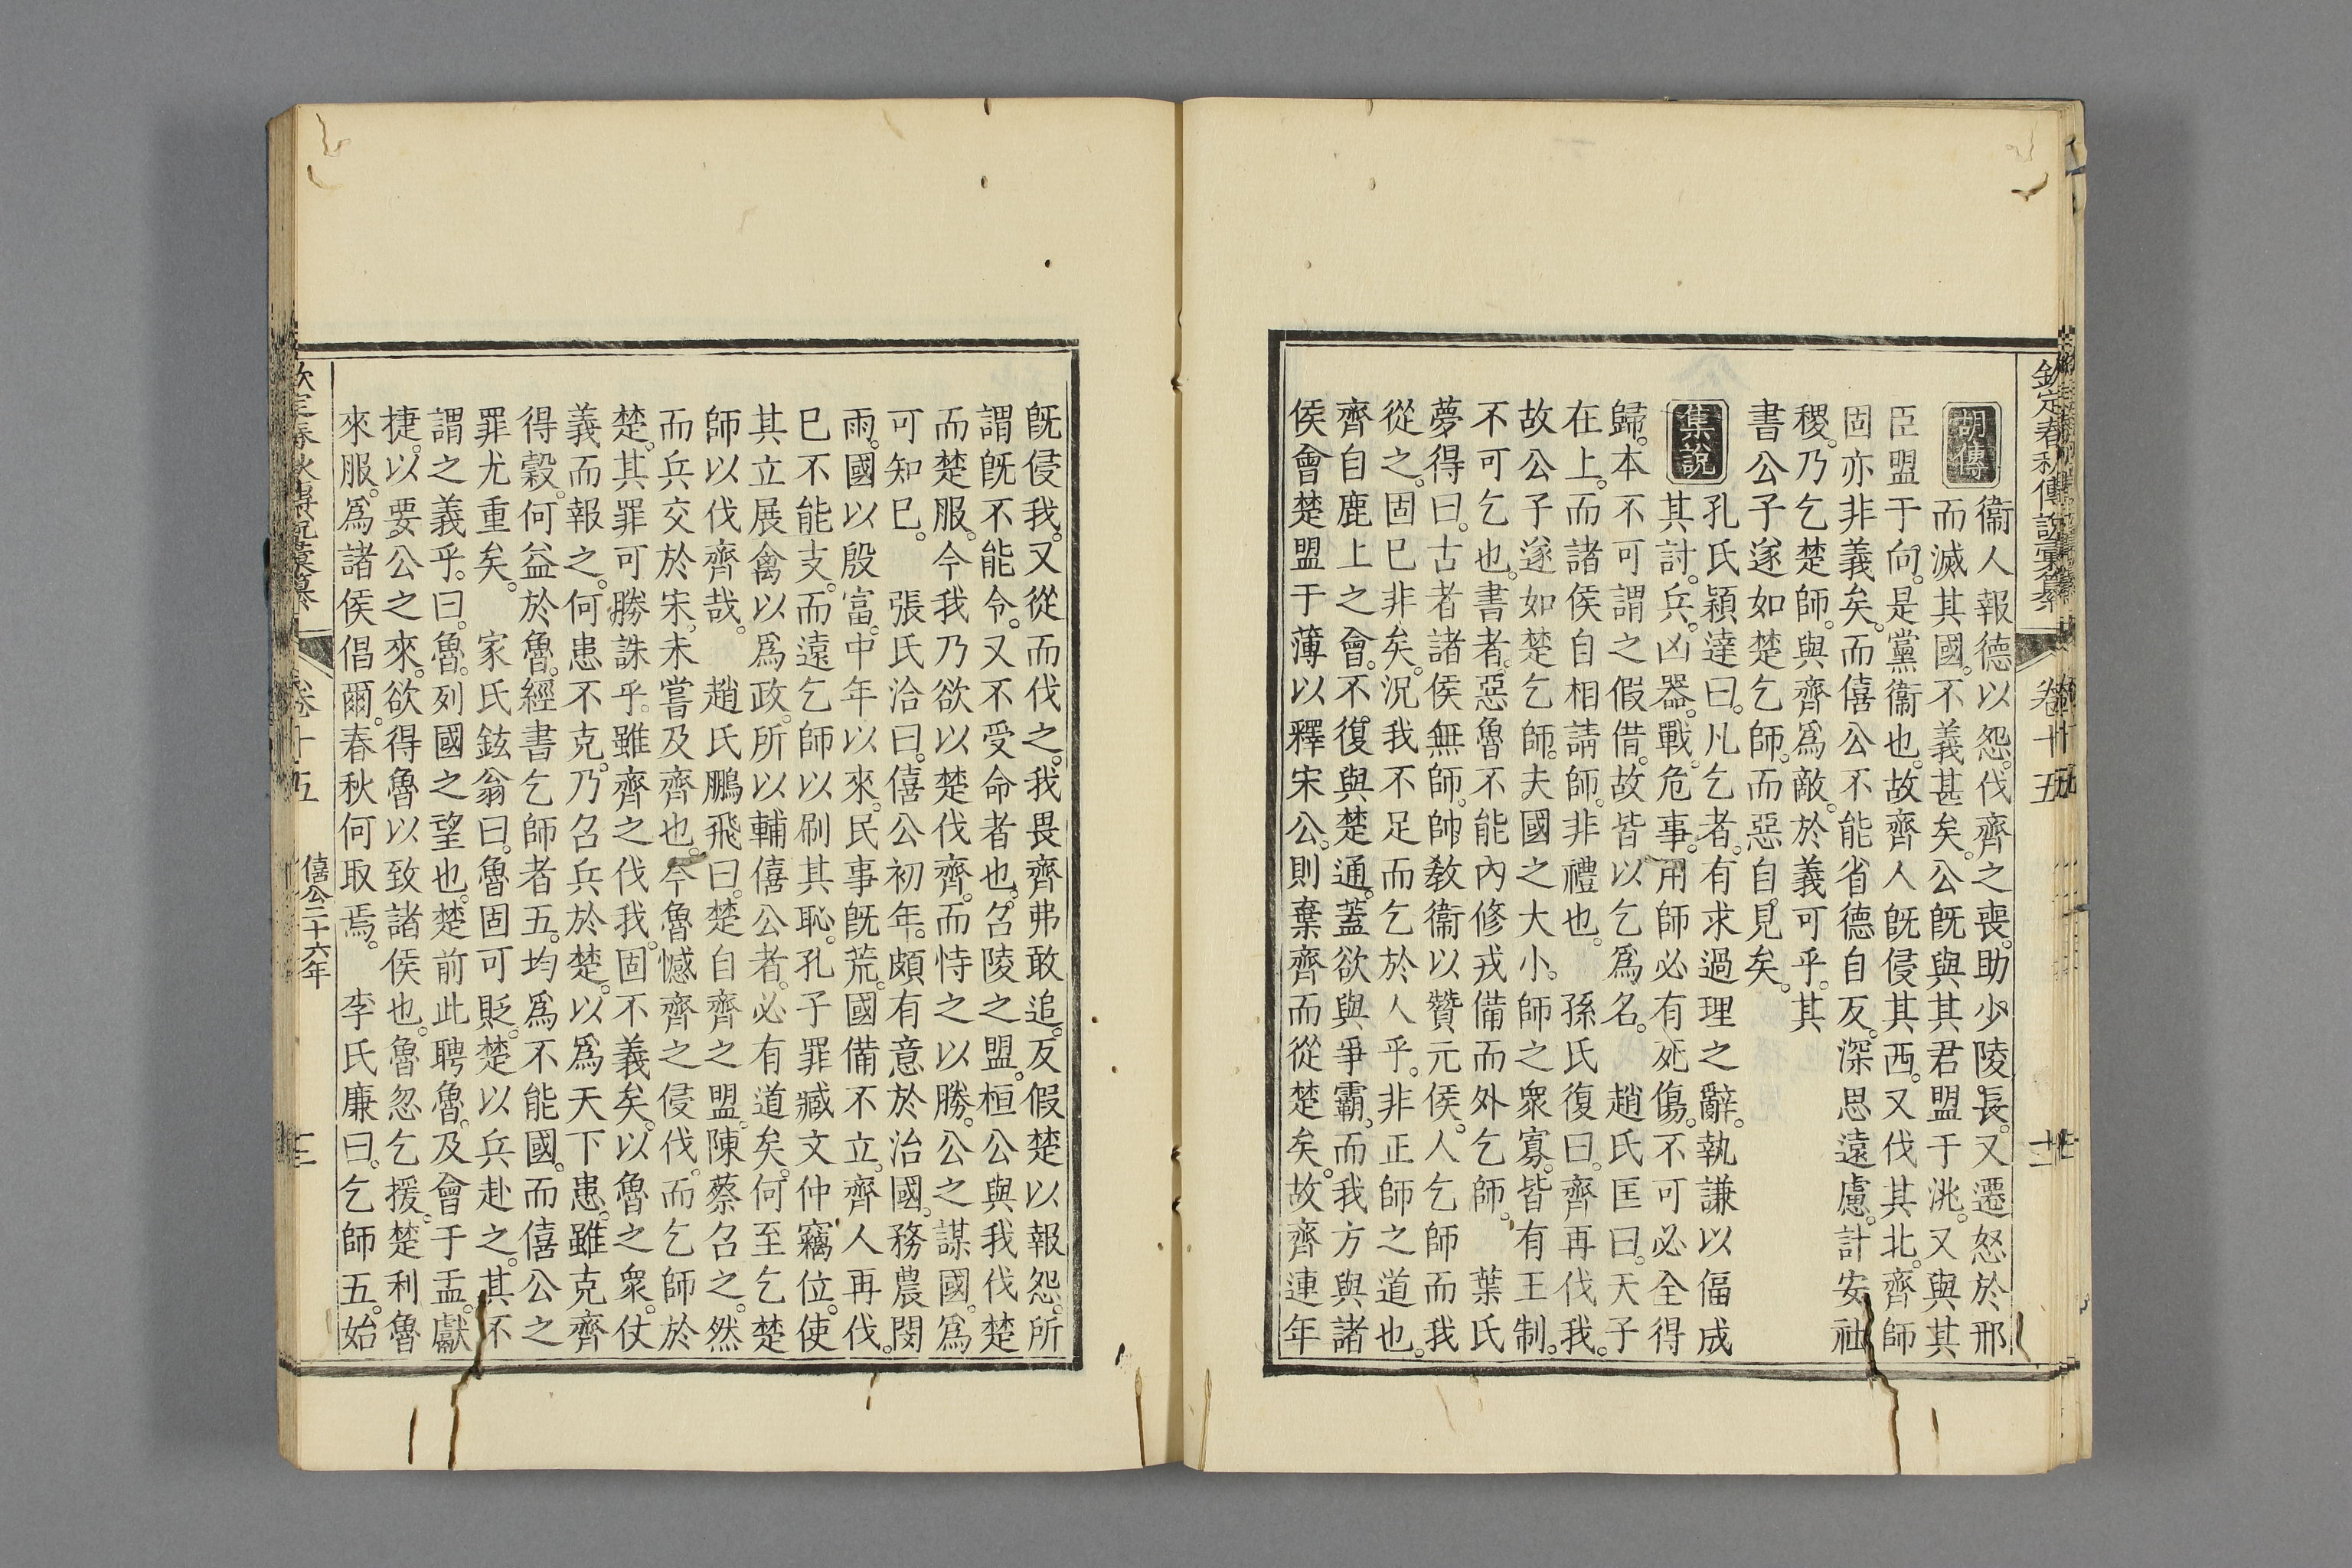 欽定春秋傳說彙纂 卷十五 十二
胡傳 衞人報德以怨。伐齊之喪。助少陵長。又遷怒於邢
而滅其國。不義甚矣。公旣與其君盟于洮。又與其
臣盟于向。是黨衞也。故齊人旣侵其西。又伐其北。齊師
固亦非義矣。而僖公不能省德自反。深思遠慮。計安社
稷。乃乞楚師。與齊爲敵。於義可乎。其
書公子遂如楚乞師。而惡自見矣。
集說 孔氏穎達曰。凡乞者。有求過理之辭。執謙以偪成
其計。兵。凶器。戰。危事。用師必有死傷。不可必全得
歸。本不可謂之假借。故皆以乞爲名。 趙氏匡曰。天子
在上。而諸侯自相請師。非禮也。 孫氏復曰。齊再伐我。
故公子遂如楚乞師。夫國之大小。師之衆寡。皆有王制。
不可乞也。書者。惡魯不能內修戎備而外乞師。 葉氏
夢得曰。古者諸侯無師。帥敎衞以贊元侯。人乞師而我
從之。固已非矣。況我不足而乞於人乎。非正師之道也。
齊自鹿上之會。不復與楚通。蓋欲與爭霸。而我方與諸
侯會楚盟于薄以釋宋公。則棄齊而從楚矣。故齊連年
旣侵我。又從而伐之。我畏齊弗敢追。反假楚以報怨。所
謂旣不能令。又不受命者也。召陵之盟。桓公與我伐楚
而楚服。今我乃欲以楚伐齊。而恃之以勝。公之謀國。爲
可知已。 張氏洽曰。僖公初年。頗有意於治國。務農閔
雨。國以殷富。中年以來。民事旣荒。國備不立。齊人再伐。
已不能支。而遠乞師以刷其恥。孔子罪臧文仲竊位。使
其立展禽以爲政。所以輔僖公者。必有道矣。何至乞楚
師以伐齊哉。 趙氏鵬飛曰。楚自齊之盟。陳蔡召之。然
而兵交於宋。未嘗及齊也。今魯憾齊之侵伐。而乞師於
楚。其罪可勝誅乎。雖齊之伐我。固不義矣。以魯之衆。仗
義而報之。何患不克。乃召兵於楚。以爲天下患。雖克齊
得穀。何益於魯。經書乞師者五。均爲不能國。而僖公之
罪尤重矣。 家氏鉉翁曰。魯固可貶。楚以兵赴之。其不
謂之義乎。曰。魯。列國之望也。楚前此聘魯。及會于盂。獻
捷。以要公之來。欲得魯以致諸侯也。魯忽乞援。楚利魯
來服。爲諸侯倡爾。春秋何取焉。 李氏廉曰。乞師五。始
欽定春秋傳說彙纂 卷十五 僖公二十六年